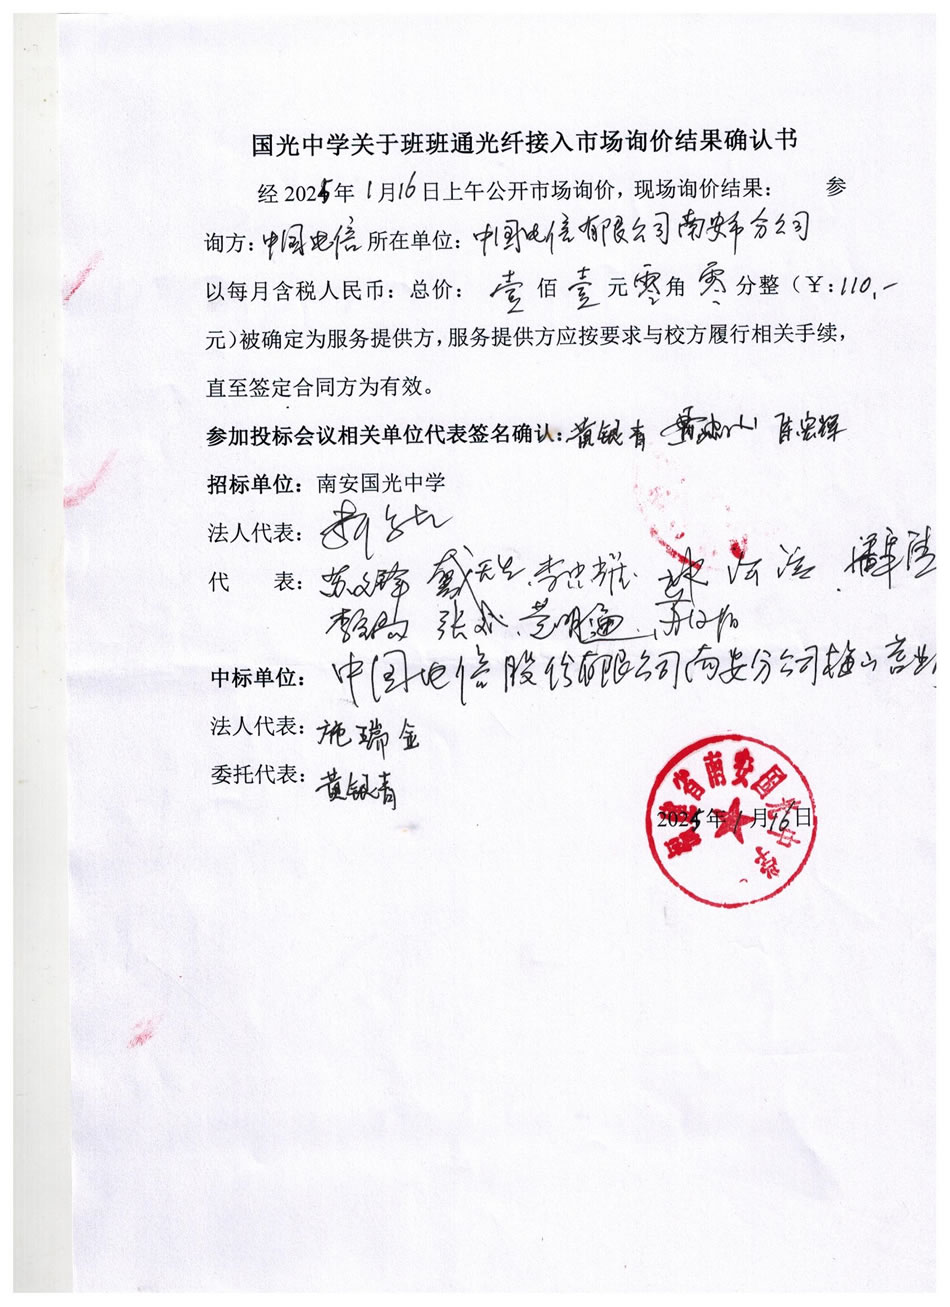 国光中学关于班班通光纤接入市场询价结果确认书
经 2025年 1月16日上午公开市场询价，现场询价结果： 参
询方：中国电信 所在单位：中国电信有限公司南安市分公司
以每月含税人民币：总价： 壹 佰 壹 元 零 角 零 分整（￥:110.-
元）被确定为服务提供方，服务提供方应按要求与校方履行相关手续，
直至签定合同方为有效。
参加投标会议相关单位代表签名确认：黄银青 陈宏辉
招标单位：南安国光中学
法人代表：
代 表：苏文锋 戴 李忠雄 林 潘
李 张 黄明 苏
中标单位：中国电信股份有限公司南安分公司梅山营业
法人代表：施瑞金
委托代表：黄银青
福建省南安国光中学
2025年1月16日